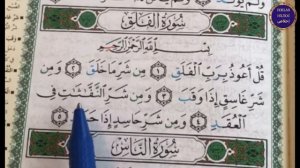 سُورَةُ الْفَلَقِ
بِسْمِ اللَّهِ الرَّحْمَٰنِ الرَّحِيمِ
قُلْ أَعُوذُ بِرَبِّ الْفَلَقِ ١ مِن شَرِّ مَا خَلَقَ ٢ وَمِن
شَرِّ غَاسِقٍ إِذَا وَقَبَ ٣ وَمِن شَرِّ النَّفَّٰثَٰتِ فِي
الْعُقَدِ ٤ وَمِن شَرِّ حَاسِدٍ إِذَا ٥
سُورَةُ النَّاسِ